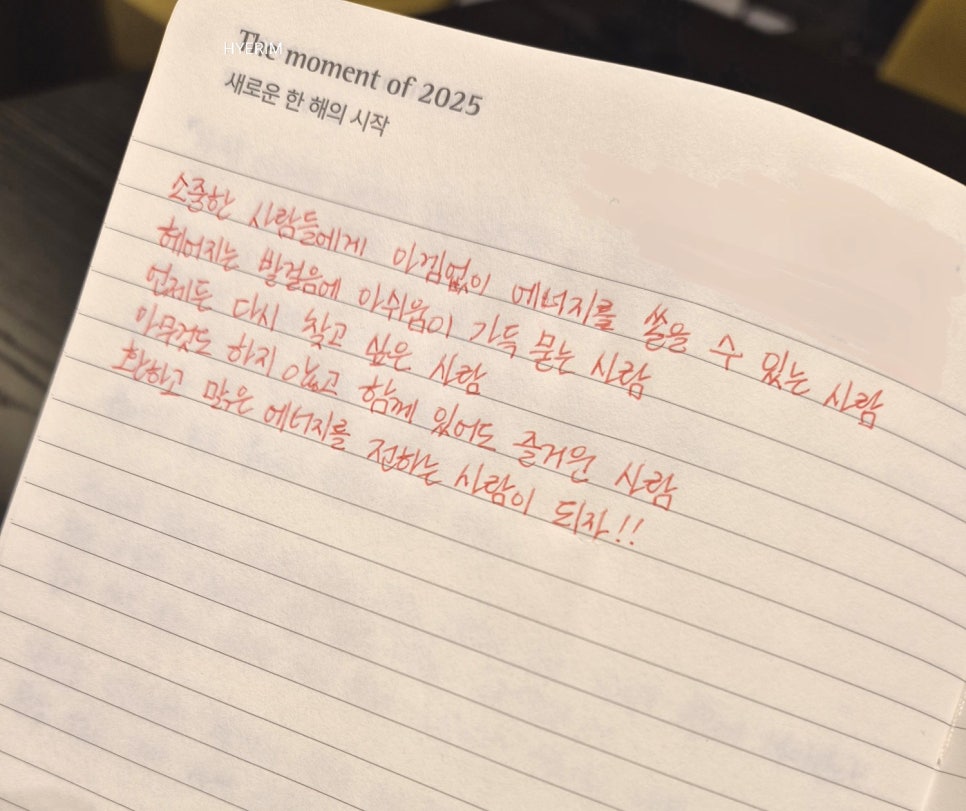 HYERIM
The moment of 2025
새로운 한 해의 시작
소중한 사람들에게 아낌없이 에너지를 쏟을 수 있는 사람
헤어지는 발걸음에 아쉬움이 가득 묻는 사람
언제든 다시 찾고 싶은 사람
아무것도 하지 않고 함께 있어도 즐거운 사람
환하고 맑은 에너지를 전하는 사람이 되자!!